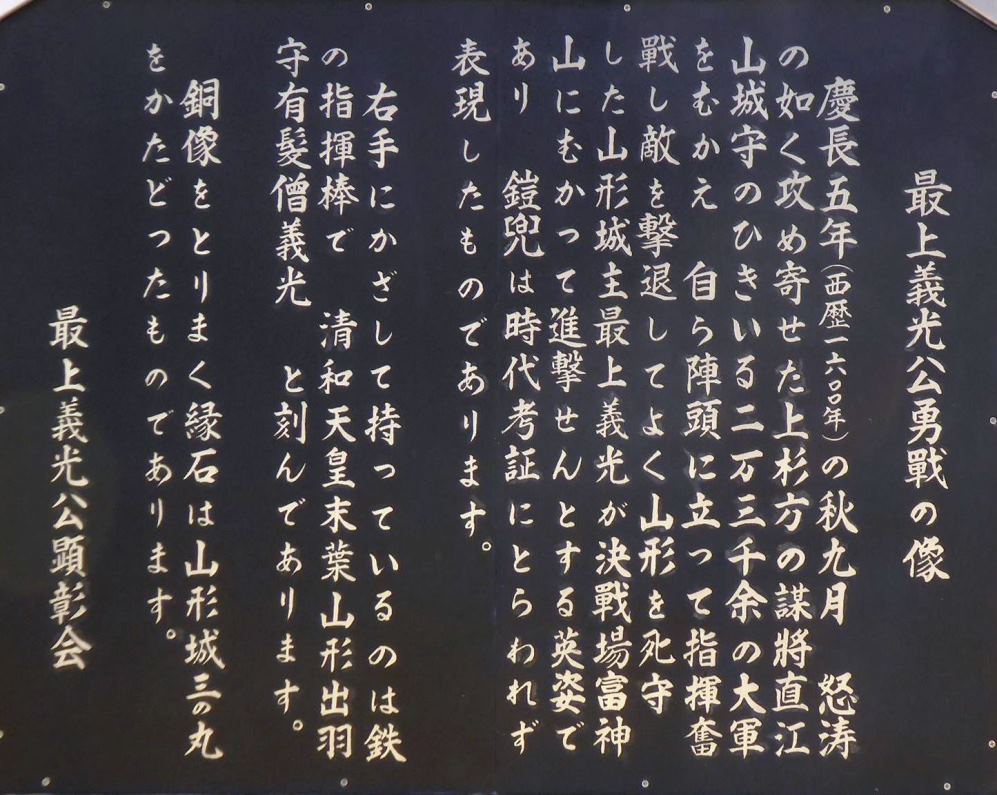 最上義光公勇戰の像
慶長五年(西歴一六〇〇年)の秋九月 怒涛
の如く攻め寄せた上杉方の謀將直江
山城守のひきいる二万三千余の大軍
をむかえ 自ら陣頭に立って指揮奮
戰し敵を撃退してよく山形を死守
した山形城主最上義光が決戰場富神
山にむかって進撃せんとする英姿で
あり 鎧兜は時代考証にとらわれず
表現したものであります。
右手にかざして持っているのは鉄
の指揮棒で 清和天皇末葉山形出羽
守有髪僧義光 と刻んであります。
銅像をとりまく縁石は山形城三の丸
をかたどったものであります。
最上義光公顕彰会